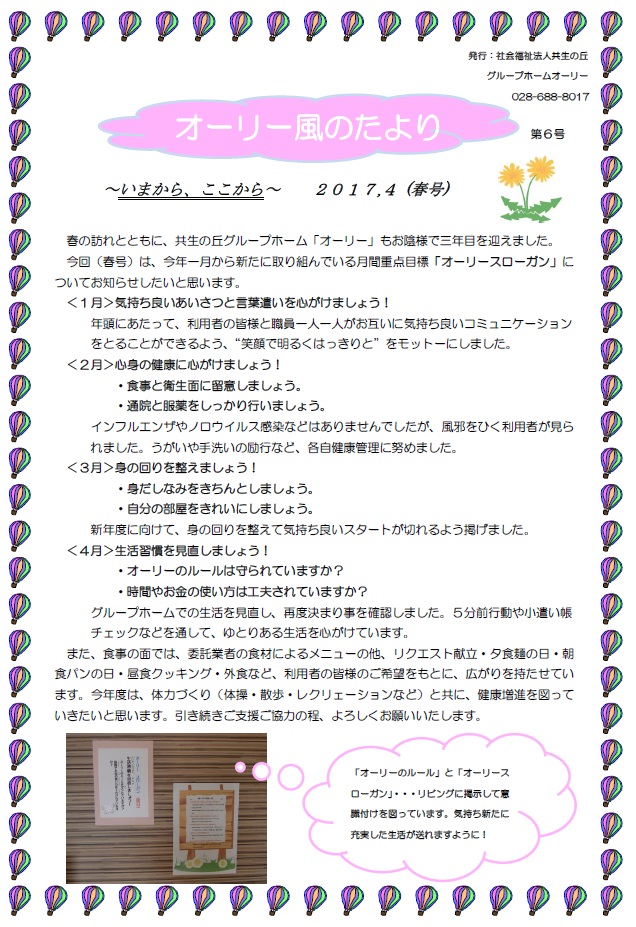 発行：社会福祉法人共生の丘
グループホームオーリー
028-688-8017
オーリー風のたより
第６号
～いまから、ここから～　２０１７,４（春号）
春の訪れとともに、共生の丘グループホーム「オーリー」もお陰様で三年目を迎えました。
今回（春号）は、今年一月から新たに取り組んでいる月間重点目標「オーリースローガン」に
ついてお知らせしたいと思います。
＜１月＞気持ち良いあいさつと言葉遣いを心がけましょう！
年頭にあたって、利用者の皆様と職員一人一人がお互いに気持ち良いコミュニケーション
をとることができるよう、“笑顔で明るくはっきりと”をモットーにしました。
＜２月＞心身の健康に心がけましょう！
・食事と衛生面に留意しましょう。
・通院と服薬をしっかり行いましょう。
インフルエンザやノロウイルス感染などはありませんでしたが、風邪をひく利用者が見ら
れました。うがいや手洗いの励行など、各自健康管理に努めました。
＜３月＞身の回りを整えましょう！
・身だしなみをきちんとしましょう。
・自分の部屋をきれいにしましょう。
新年度に向けて、身の回りを整えて気持ち良いスタートが切れるよう掲げました。
＜４月＞生活習慣を見直しましょう！
・オーリーのルールは守られていますか？
・時間やお金の使い方は工夫されていますか？
グループホームでの生活を見直し、再度決まり事を確認しました。５分前行動や小遣い帳
チェックなどを通して、ゆとりある生活を心がけています。
また、食事の面では、委託業者の食材によるメニューの他、リクエスト献立・夕食麺の日・朝
食パンの日・昼食クッキング・外食など、利用者の皆様のご希望をもとに、広がりを持たせてい
ます。今年度は、体力づくり（体操・散歩・レクリェーションなど）と共に、健康増進を図って
いきたいと思います。引き続きご支援ご協力の程、よろしくお願いいたします。
「オーリーのルール」と「オーリース
ローガン」・・・リビングに掲示して意
識付けを図っています。気持ち新たに
充実した生活が送れますように！